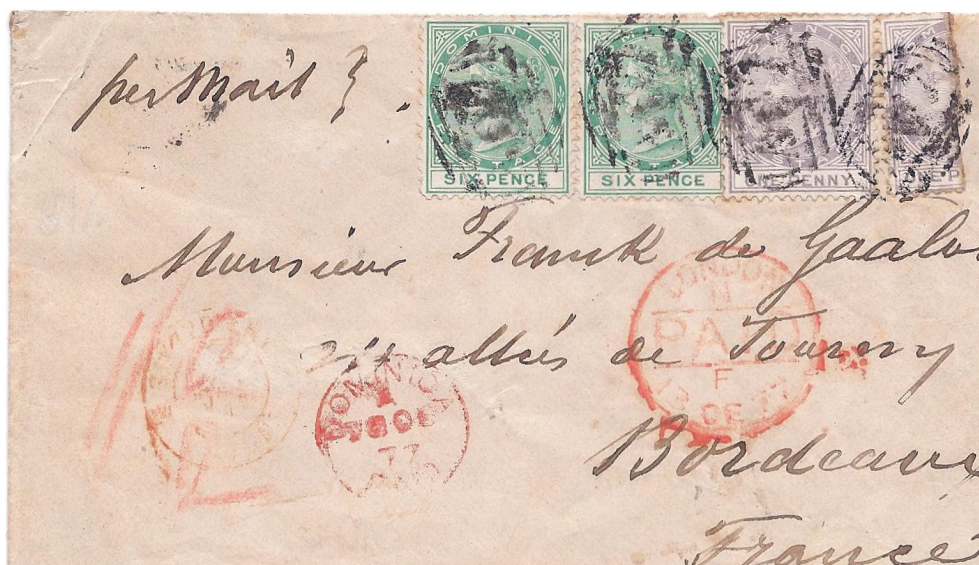 per Mail
DOMINICA
POSTAGE
SIX PENCE
DOMINICA
POSTAGE
SIX PENCE
DOMINICA
ONE PENNY
ONE P
Monsieur Franck de
allées de Tourny
Bordeaux
France
LONDON
PAID
DOMINICA
77
PAID